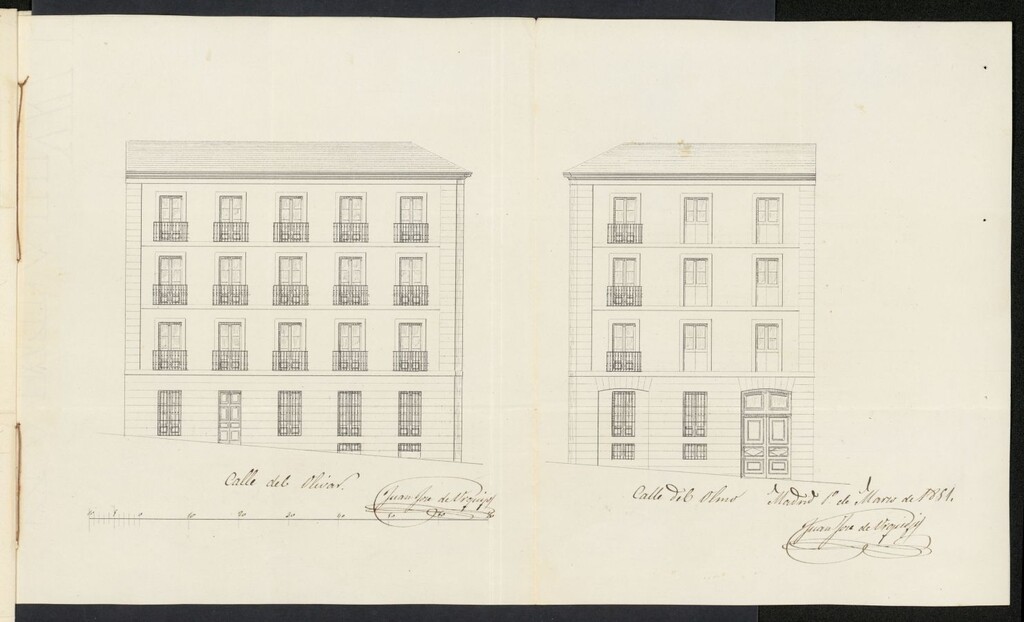 Calle del Olivar.
Juan José de Urquijo
10 5 0 10 20 30 40 50 60 70
Calle del Olmo
Madrid 1º de Marzo de 1851.
Juan José de Urquijo